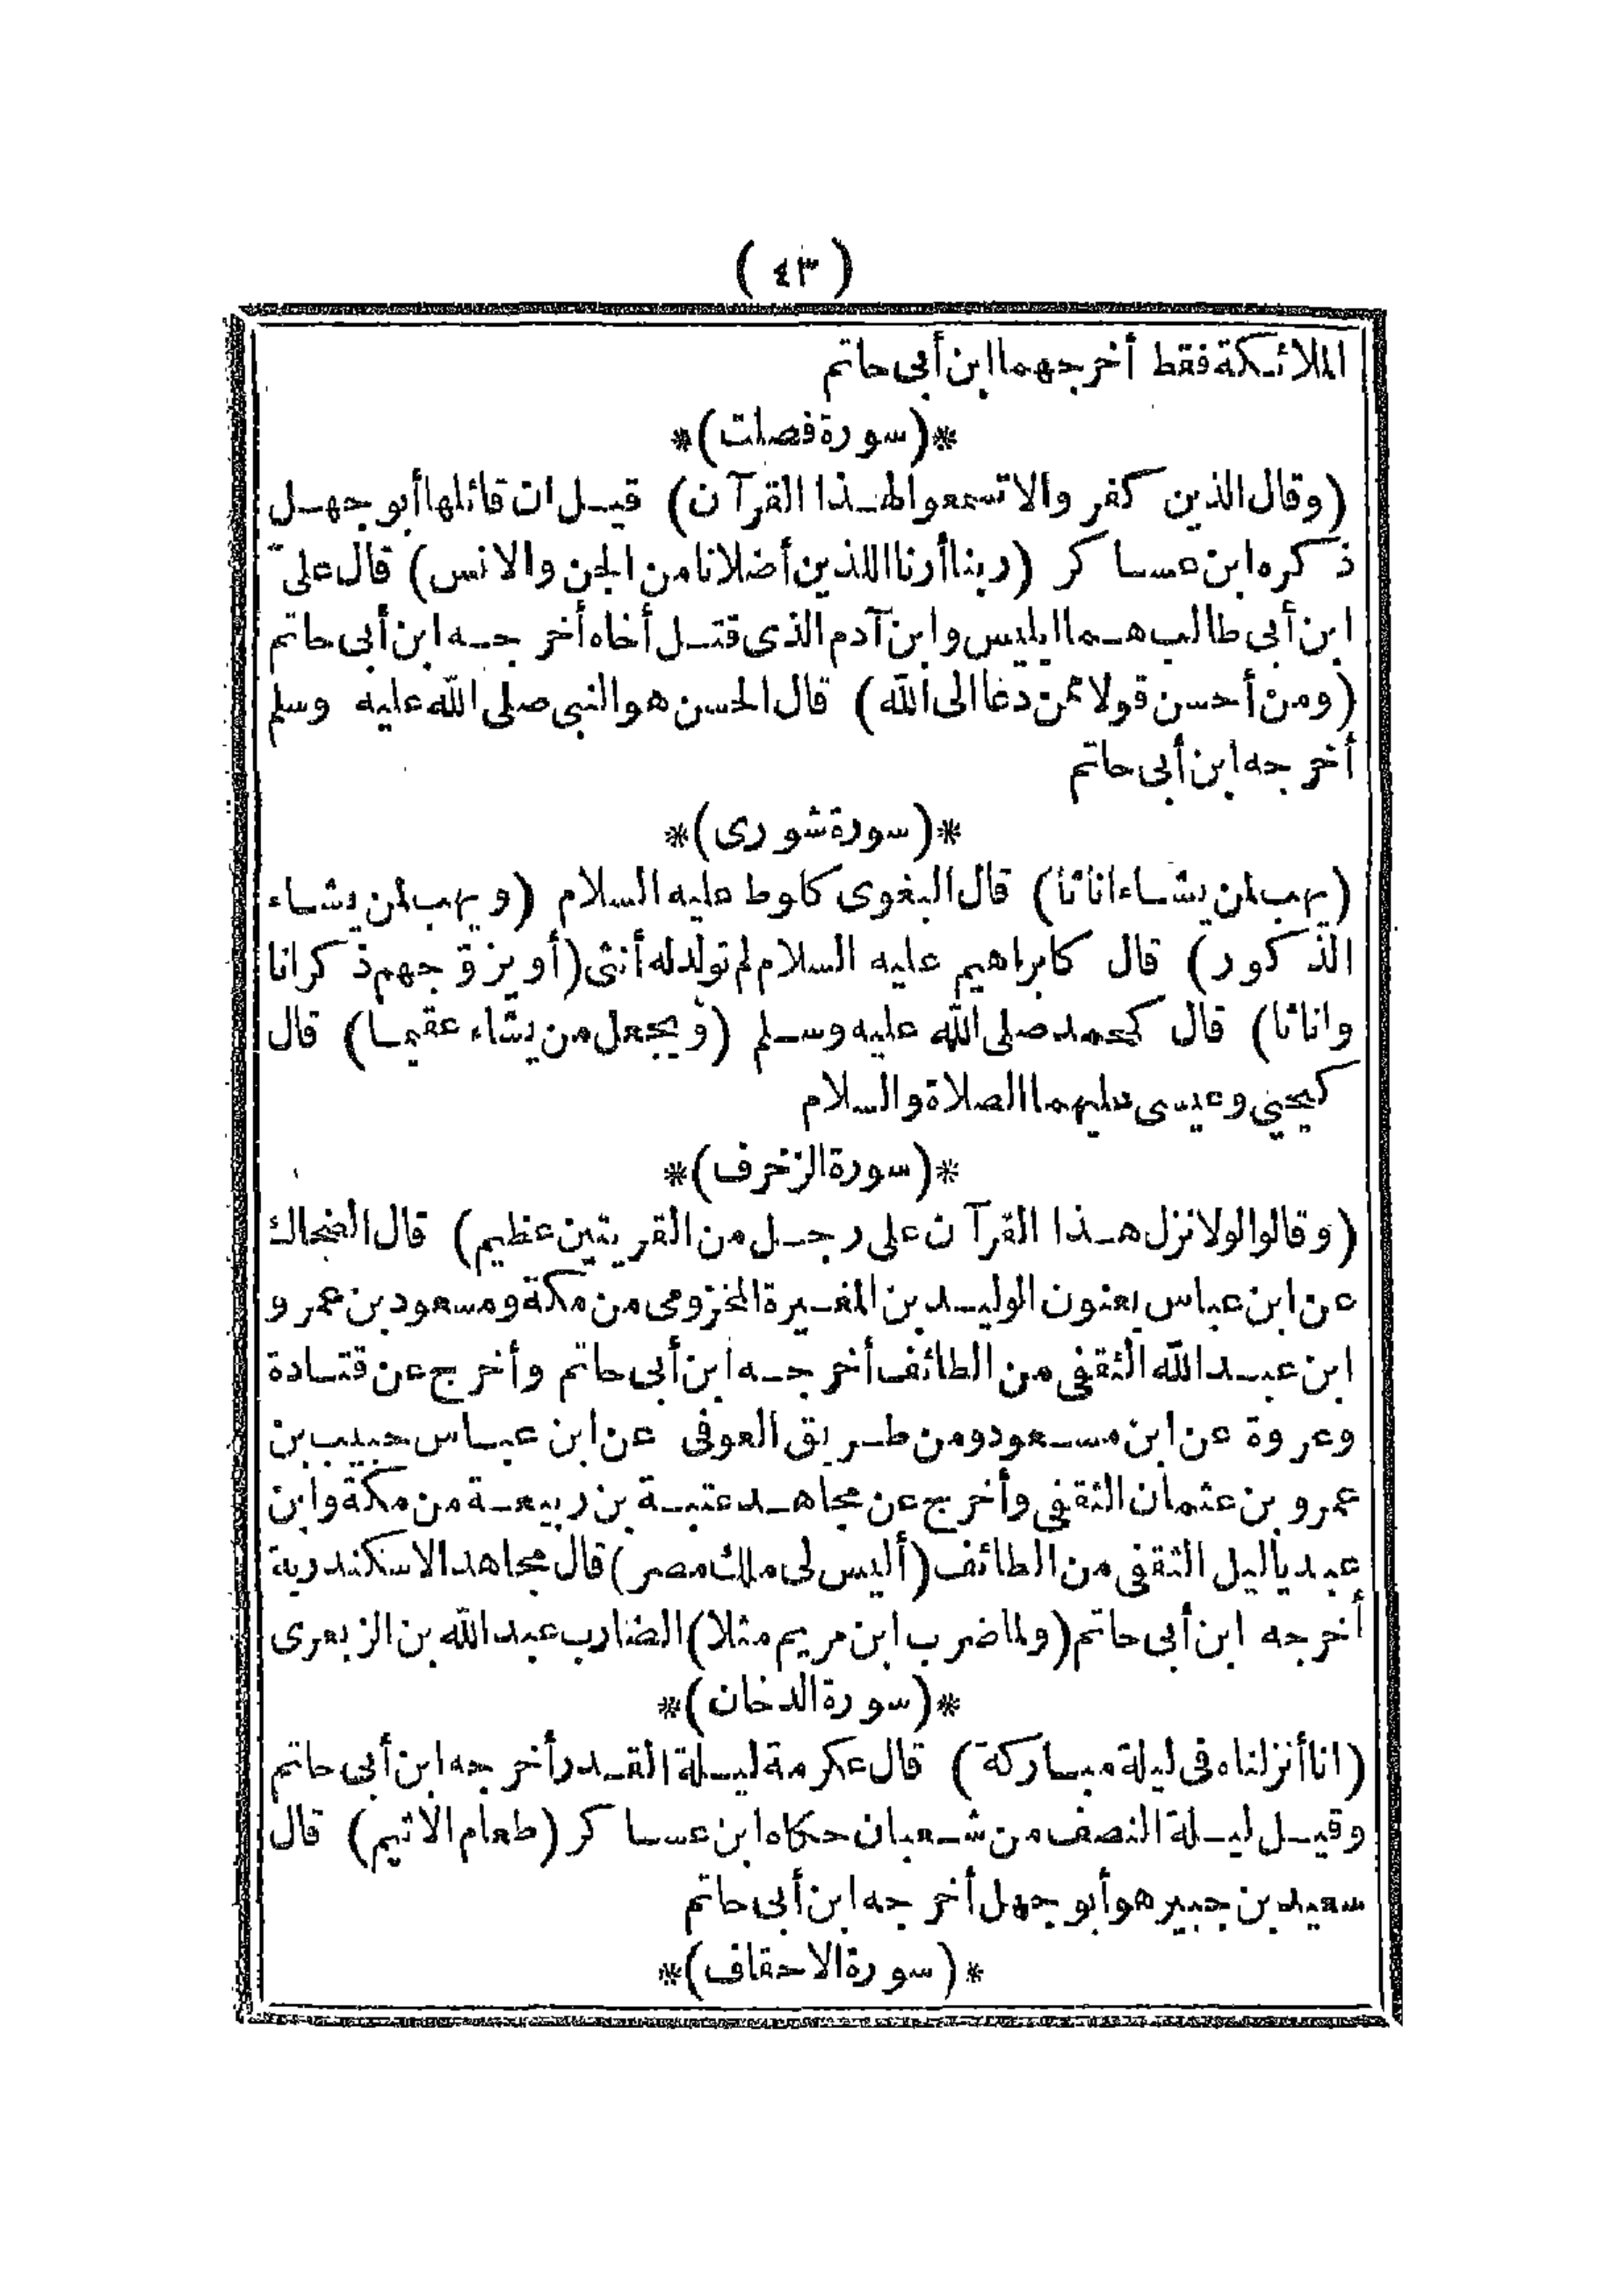 ( ٤٣ )
الملائكة فقط أخرجهما ابن أبى حاتم
*(سورة فصلت)*
(وقال الذين كفروا لا تسمعوا لهذا القرآن) قيل ان قائلها أبو جهل
ذكره ابن عساكر (ربنا أرنا اللذين أضلانا من الجن والانس) قال على
ابن أبى طالب هما ابليس وابن آدم الذى قتل أخاه أخرجه ابن أبى حاتم
(ومن أحسن قولا ممن دعا الى الله) قال الحسن هو النبى صلى الله عليه وسلم
أخرجه ابن أبى حاتم
*(سورة شورى)*
(يهب لمن يشاء اناثا) قال البغوى كلوط عليه السلام (ويهب لمن يشاء
الذكور) قال كابراهيم عليه السلام لم تولد له أنثى (أو يزوّجهم ذكرانا
واناثا) قال كمحمد صلى الله عليه وسلم (ويجعل من يشاء عقيما) قال
كيحيى وعيسى عليهما الصلاة والسلام
*(سورة الزخرف)*
(وقالوا لولا نزل هذا القرآن على رجل من القريتين عظيم) قال الضحاك
عن ابن عباس يعنون الوليد بن المغيرة المخزومى من مكة ومسعود بن عمرو
ابن عبد الله الثقفى من الطائف أخرجه ابن أبى حاتم وأخرج عن قتادة
وعروة عن ابن مسعود ومن طريق العوفى عن ابن عباس حبيب بن
عمرو بن عثمان الثقفى وأخرج عن مجاهد عتبة بن ربيعة من مكة وابن
عبد ياليل الثقفى من الطائف (أليس لى ملك مصر) قال مجاهد الاسكندرية
أخرجه ابن أبى حاتم (ولما ضرب ابن مريم مثلا) الضارب عبد الله بن الزبعرى
*(سورة الدخان)*
(انا أنزلناه فى ليلة مباركة) قال عكرمة ليلة القدر أخرجه ابن أبى حاتم
وقيل ليلة النصف من شعبان حكاه ابن عساكر (طعام الاثيم) قال
سعيد بن جبير هو أبو جهل أخرجه ابن أبى حاتم
*(سورة الاحقاف)*